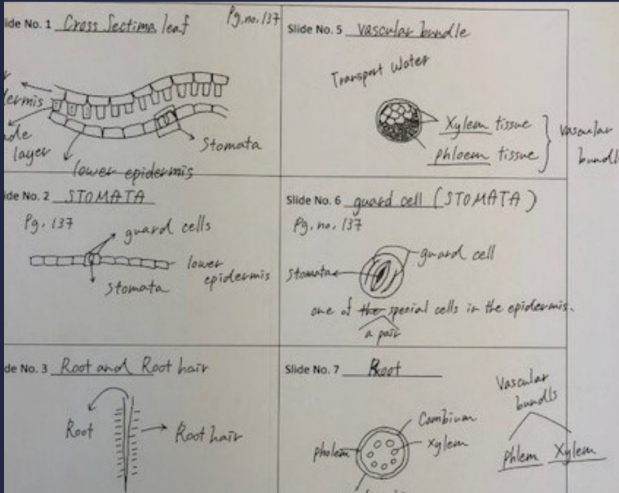 ide No. 1 Cross Sectima leaf
Pg.no.137
dermis
ade
layer
lower epidermis
Stomata
Slide No. 5 vascular bundle
Transport Water
Xylem tissue
phloem tissue
vascular
bundl
ide No. 2 STOMATA
Pg. 137
guard cells
lower
epidermis
stomata
Slide No. 6 guard cell (STOMATA)
Pg. no. 137
guard cell
Stomata
one of the special cells in the epidermis.
a pair
de No. 3 Root and Root hair
Root
Root hair
Slide No. 7 Root
Vascular
bundls
Combium
xylem
pholem
phlem Xylem